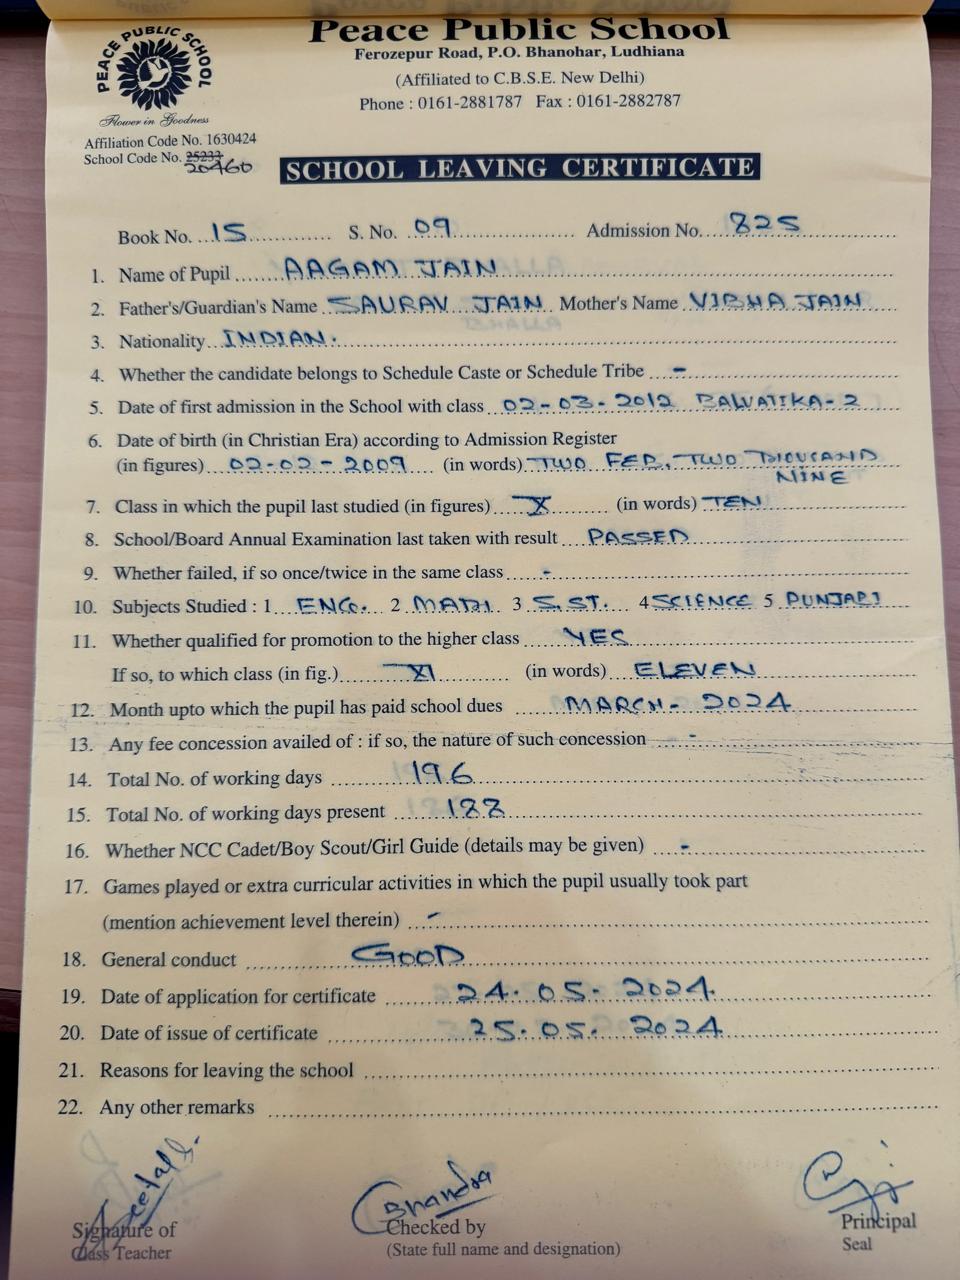 Peace Public School
Ferozepur Road, P.O. Bhanohar, Ludhiana
(Affiliated to C.B.S.E. New Delhi)
Phone : 0161-2881787 Fax : 0161-2882787
PEACE PUBLIC SCHOOL
Flower in Goodness
Affiliation Code No. 1630424
School Code No. 25233
20460
SCHOOL LEAVING CERTIFICATE
Book No. 15 S. No. 09 Admission No. 825
1. Name of Pupil AAGAM JAIN
2. Father's/Guardian's Name SAURAV JAIN Mother's Name VIBHA JAIN
3. Nationality INDIAN.
4. Whether the candidate belongs to Schedule Caste or Schedule Tribe -
5. Date of first admission in the School with class 02-03-2012 BALVATIKA-2
6. Date of birth (in Christian Era) according to Admission Register
(in figures) 02-02-2009 (in words) TWO FEB, TWO THOUSAND
NINE
7. Class in which the pupil last studied (in figures) X (in words) TEN
8. School/Board Annual Examination last taken with result PASSED
9. Whether failed, if so once/twice in the same class -
10. Subjects Studied : 1 ENG. 2 MATH 3 S.ST. 4 SCIENCE 5 PUNJABI
11. Whether qualified for promotion to the higher class YES
If so, to which class (in fig.) XI (in words) ELEVEN
12. Month upto which the pupil has paid school dues MARCH-2024
13. Any fee concession availed of : if so, the nature of such concession -
14. Total No. of working days 196
15. Total No. of working days present 188
16. Whether NCC Cadet/Boy Scout/Girl Guide (details may be given) -
17. Games played or extra curricular activities in which the pupil usually took part
(mention achievement level therein) -
18. General conduct GOOD
19. Date of application for certificate 24.05.2024.
20. Date of issue of certificate 25.05.2024
21. Reasons for leaving the school
22. Any other remarks
Chandra
Signature of Checked by Principal
Class Teacher (State full name and designation) Seal